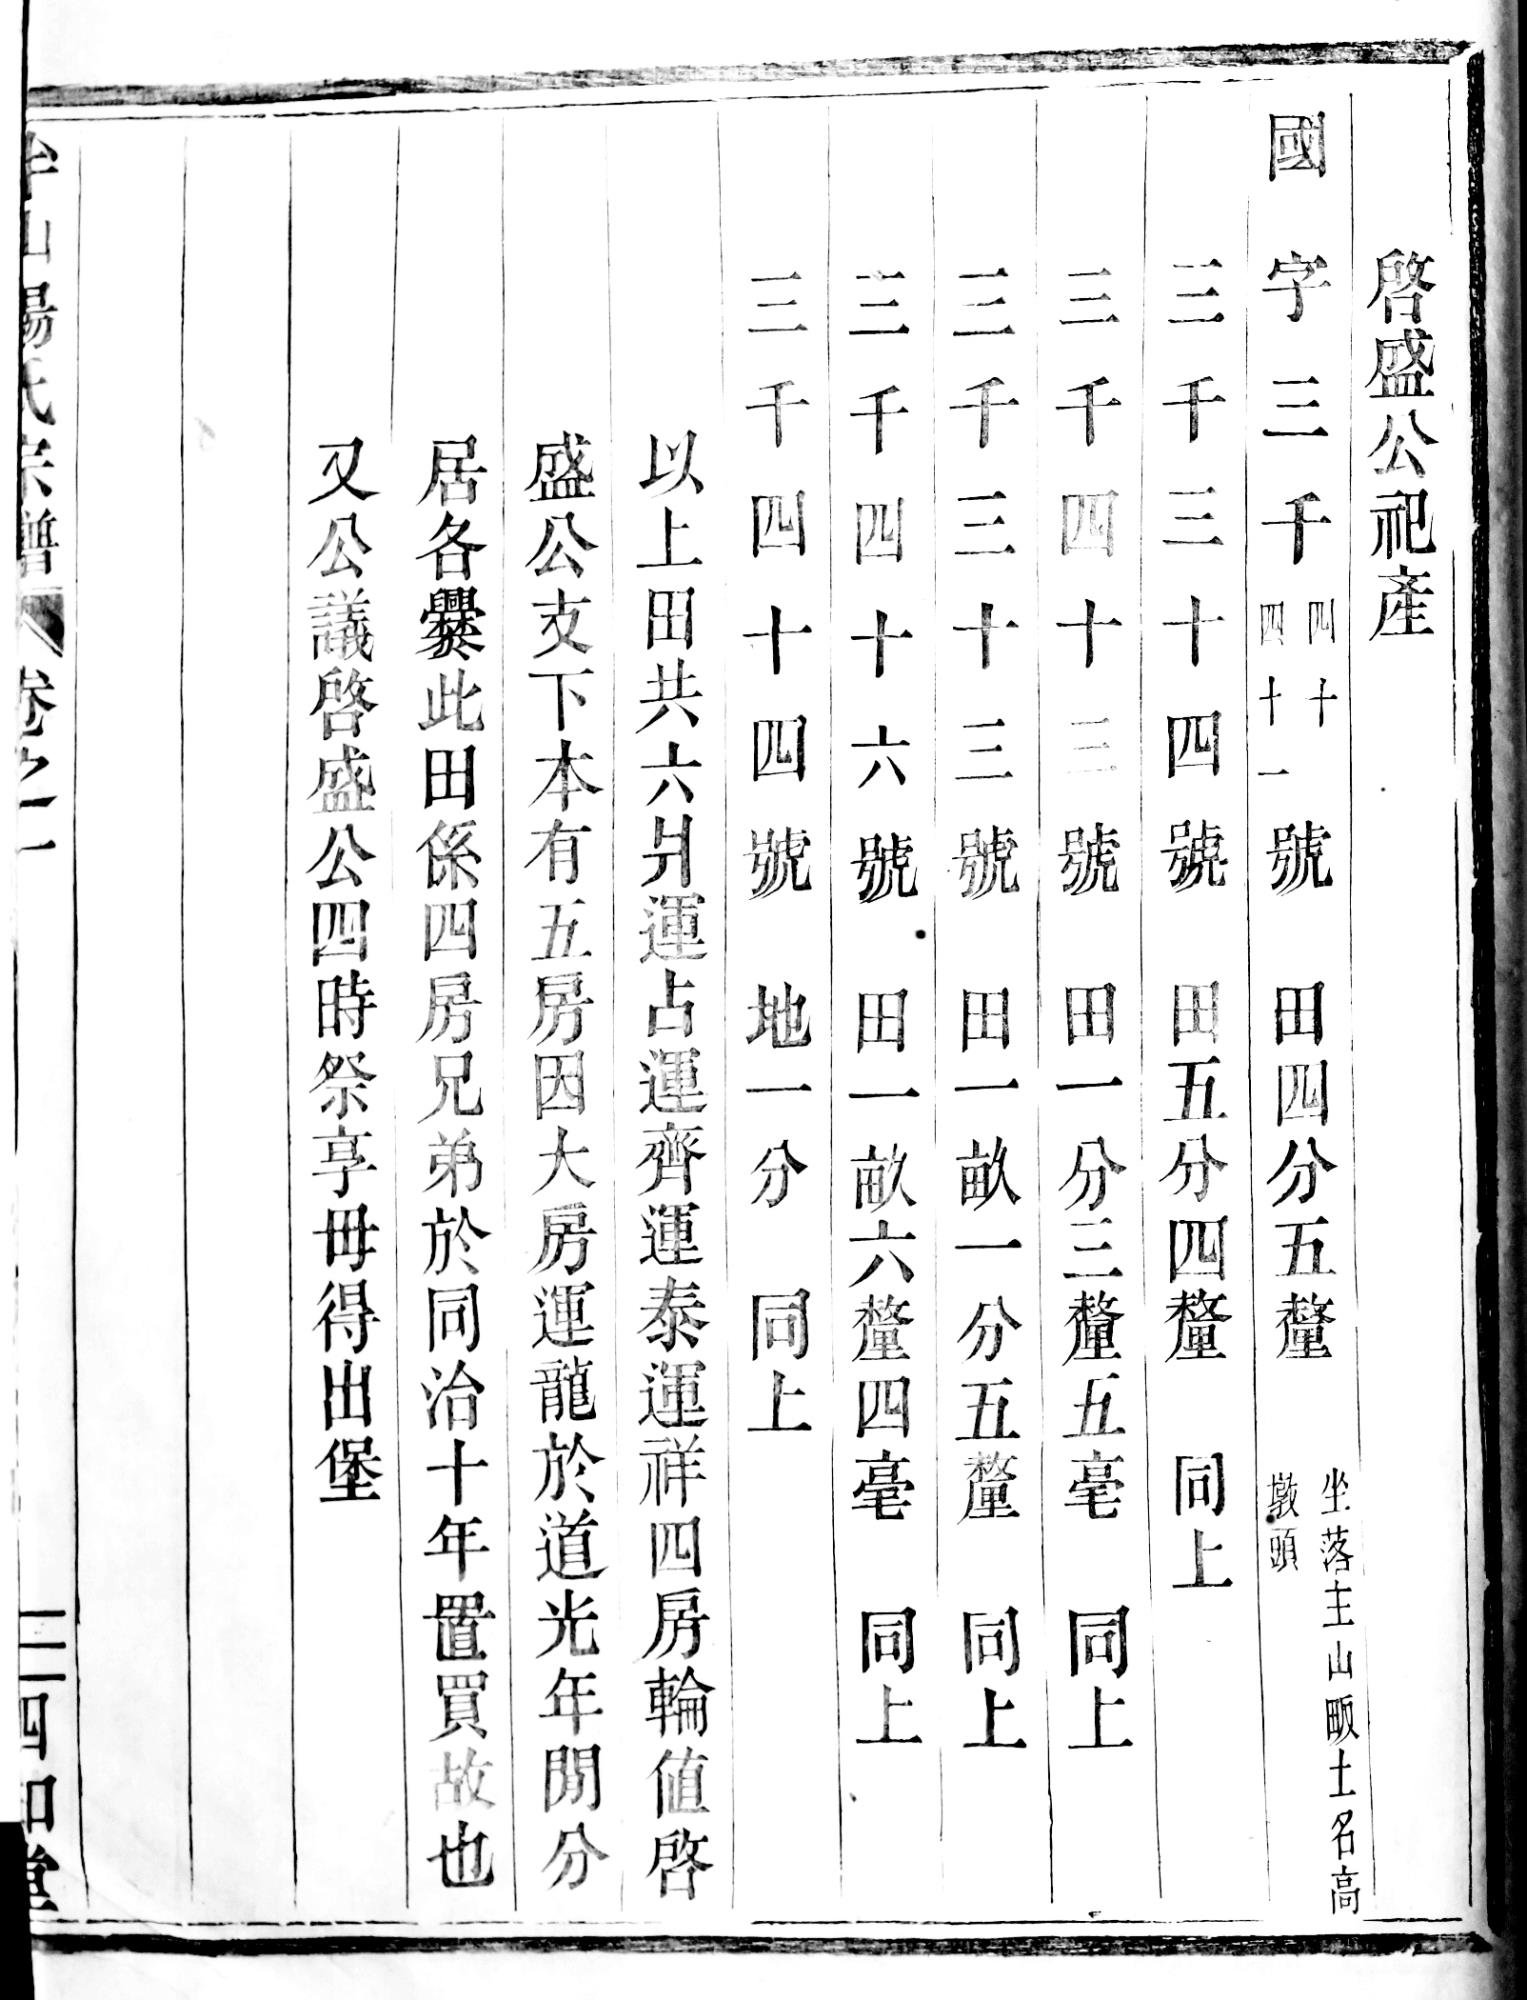 啓盛公祀產
國字三千四十四十一號 田四分五釐 坐落主山畈土名高墩頭
三千三十四號 田五分四釐 同上
三千四十三號 田一分三釐五毫 同上
三千三十三號 田一畝一分五釐 同上
三千四十六號 田一畝六釐四毫 同上
三千四十四號 地一分 同上
以上田共六爿運占運齊運泰運祥四房輪值啓
盛公支下本有五房因大房運龍於道光年閒分
居各爨此田係四房兄弟於同治十年置買故也
又公議啓盛公四時祭享毋得出堡
山 氏宗譜 卷之 四和堂